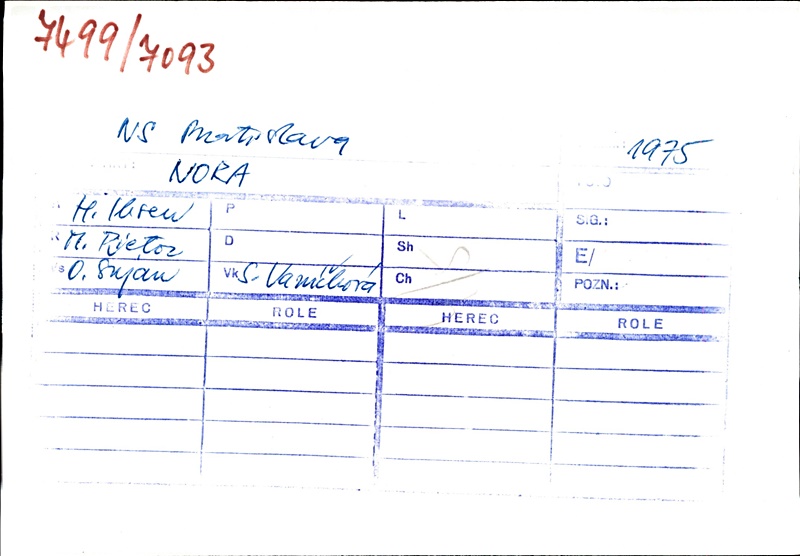 7499/7093
NS Bratislava 1975
NORA
H. Ibsen P L S.G.:
M. Pietor D Sh E/
O. Šujan Vk S. Vaníčková Ch POZN.:
HEREC ROLE HEREC ROLE